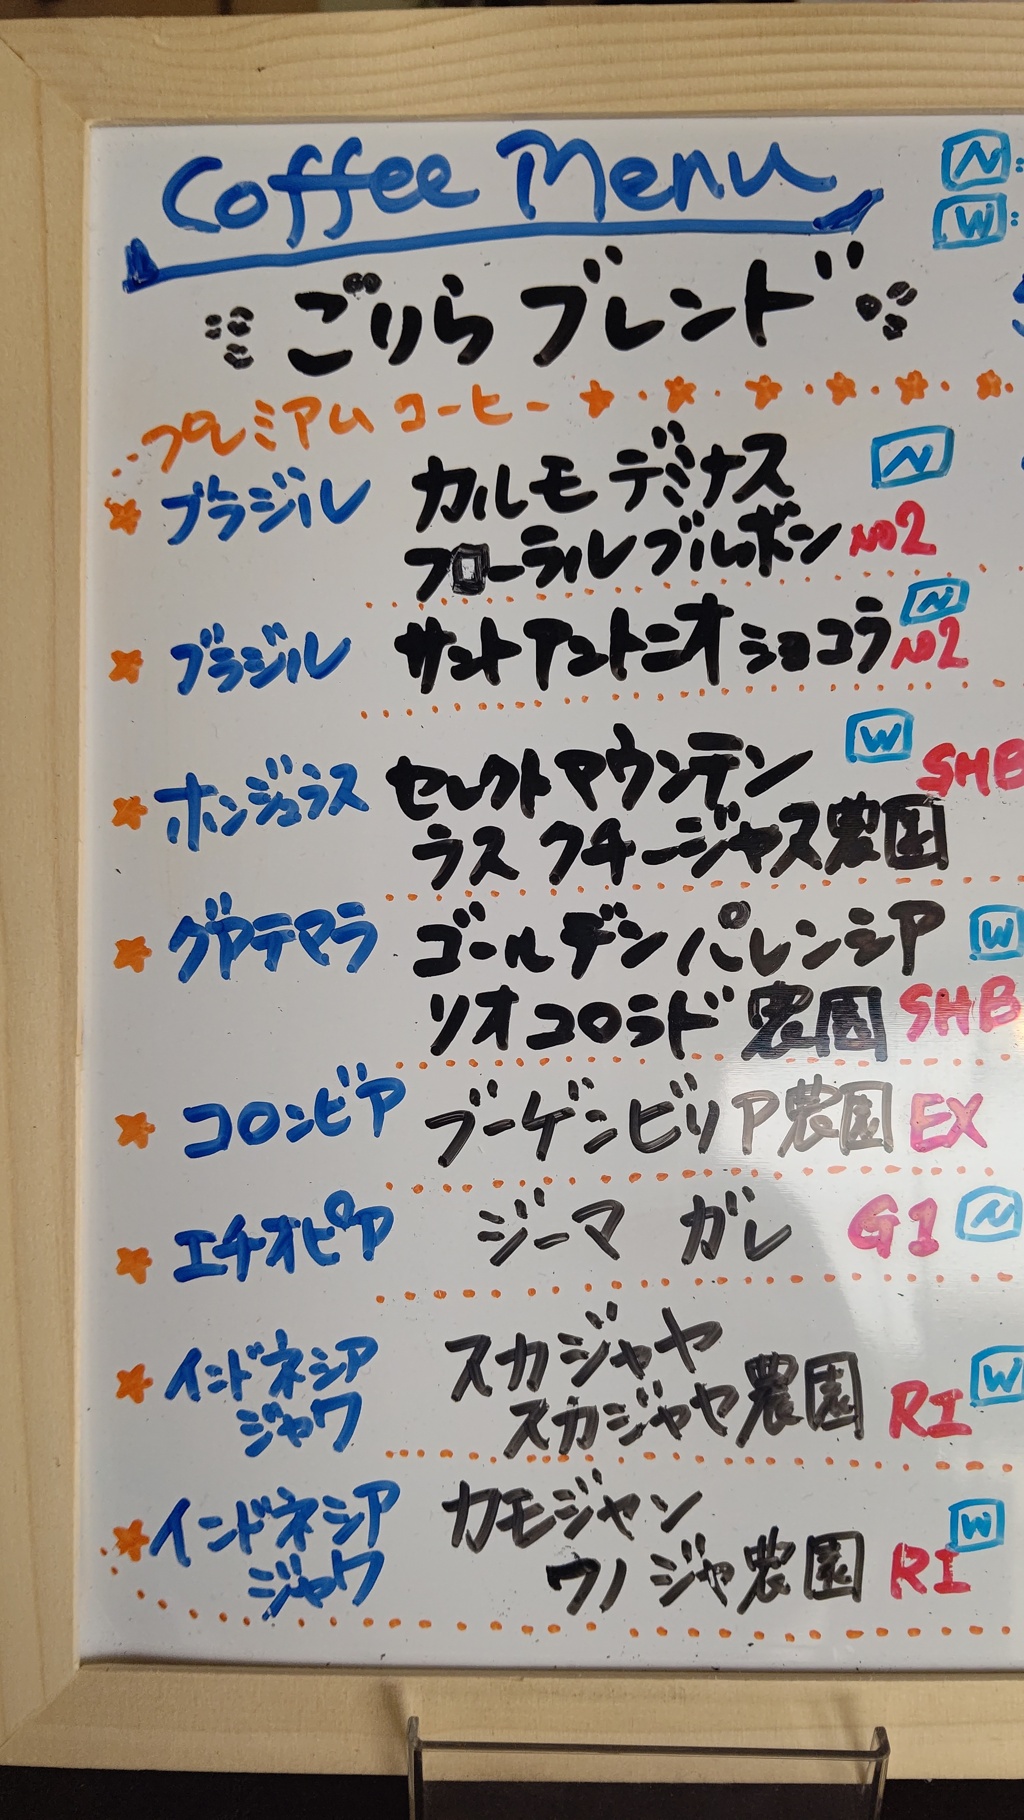 Coffee Menu
N:
W:
ごりらブレンド
プレミアムコーヒー
ブラジル カルモデミナス N
フローラルブルボン NO2
ブラジル サントアントニオショコラ N NO2
ホンジュラス セレクトマウンテン W SHB
ラスクチージャス農園
グアテマラ ゴールデンパレンシア W
リオコロラド農園 SHB
コロンビア ブーゲンビリア農園 EX
エチオピア ジーマ ガレ G1 N
インドネシア スカジャヤ W
ジャワ スカジャヤ農園 RI
インドネシア カモジャン W
ジャワ ウノジャ農園 RI